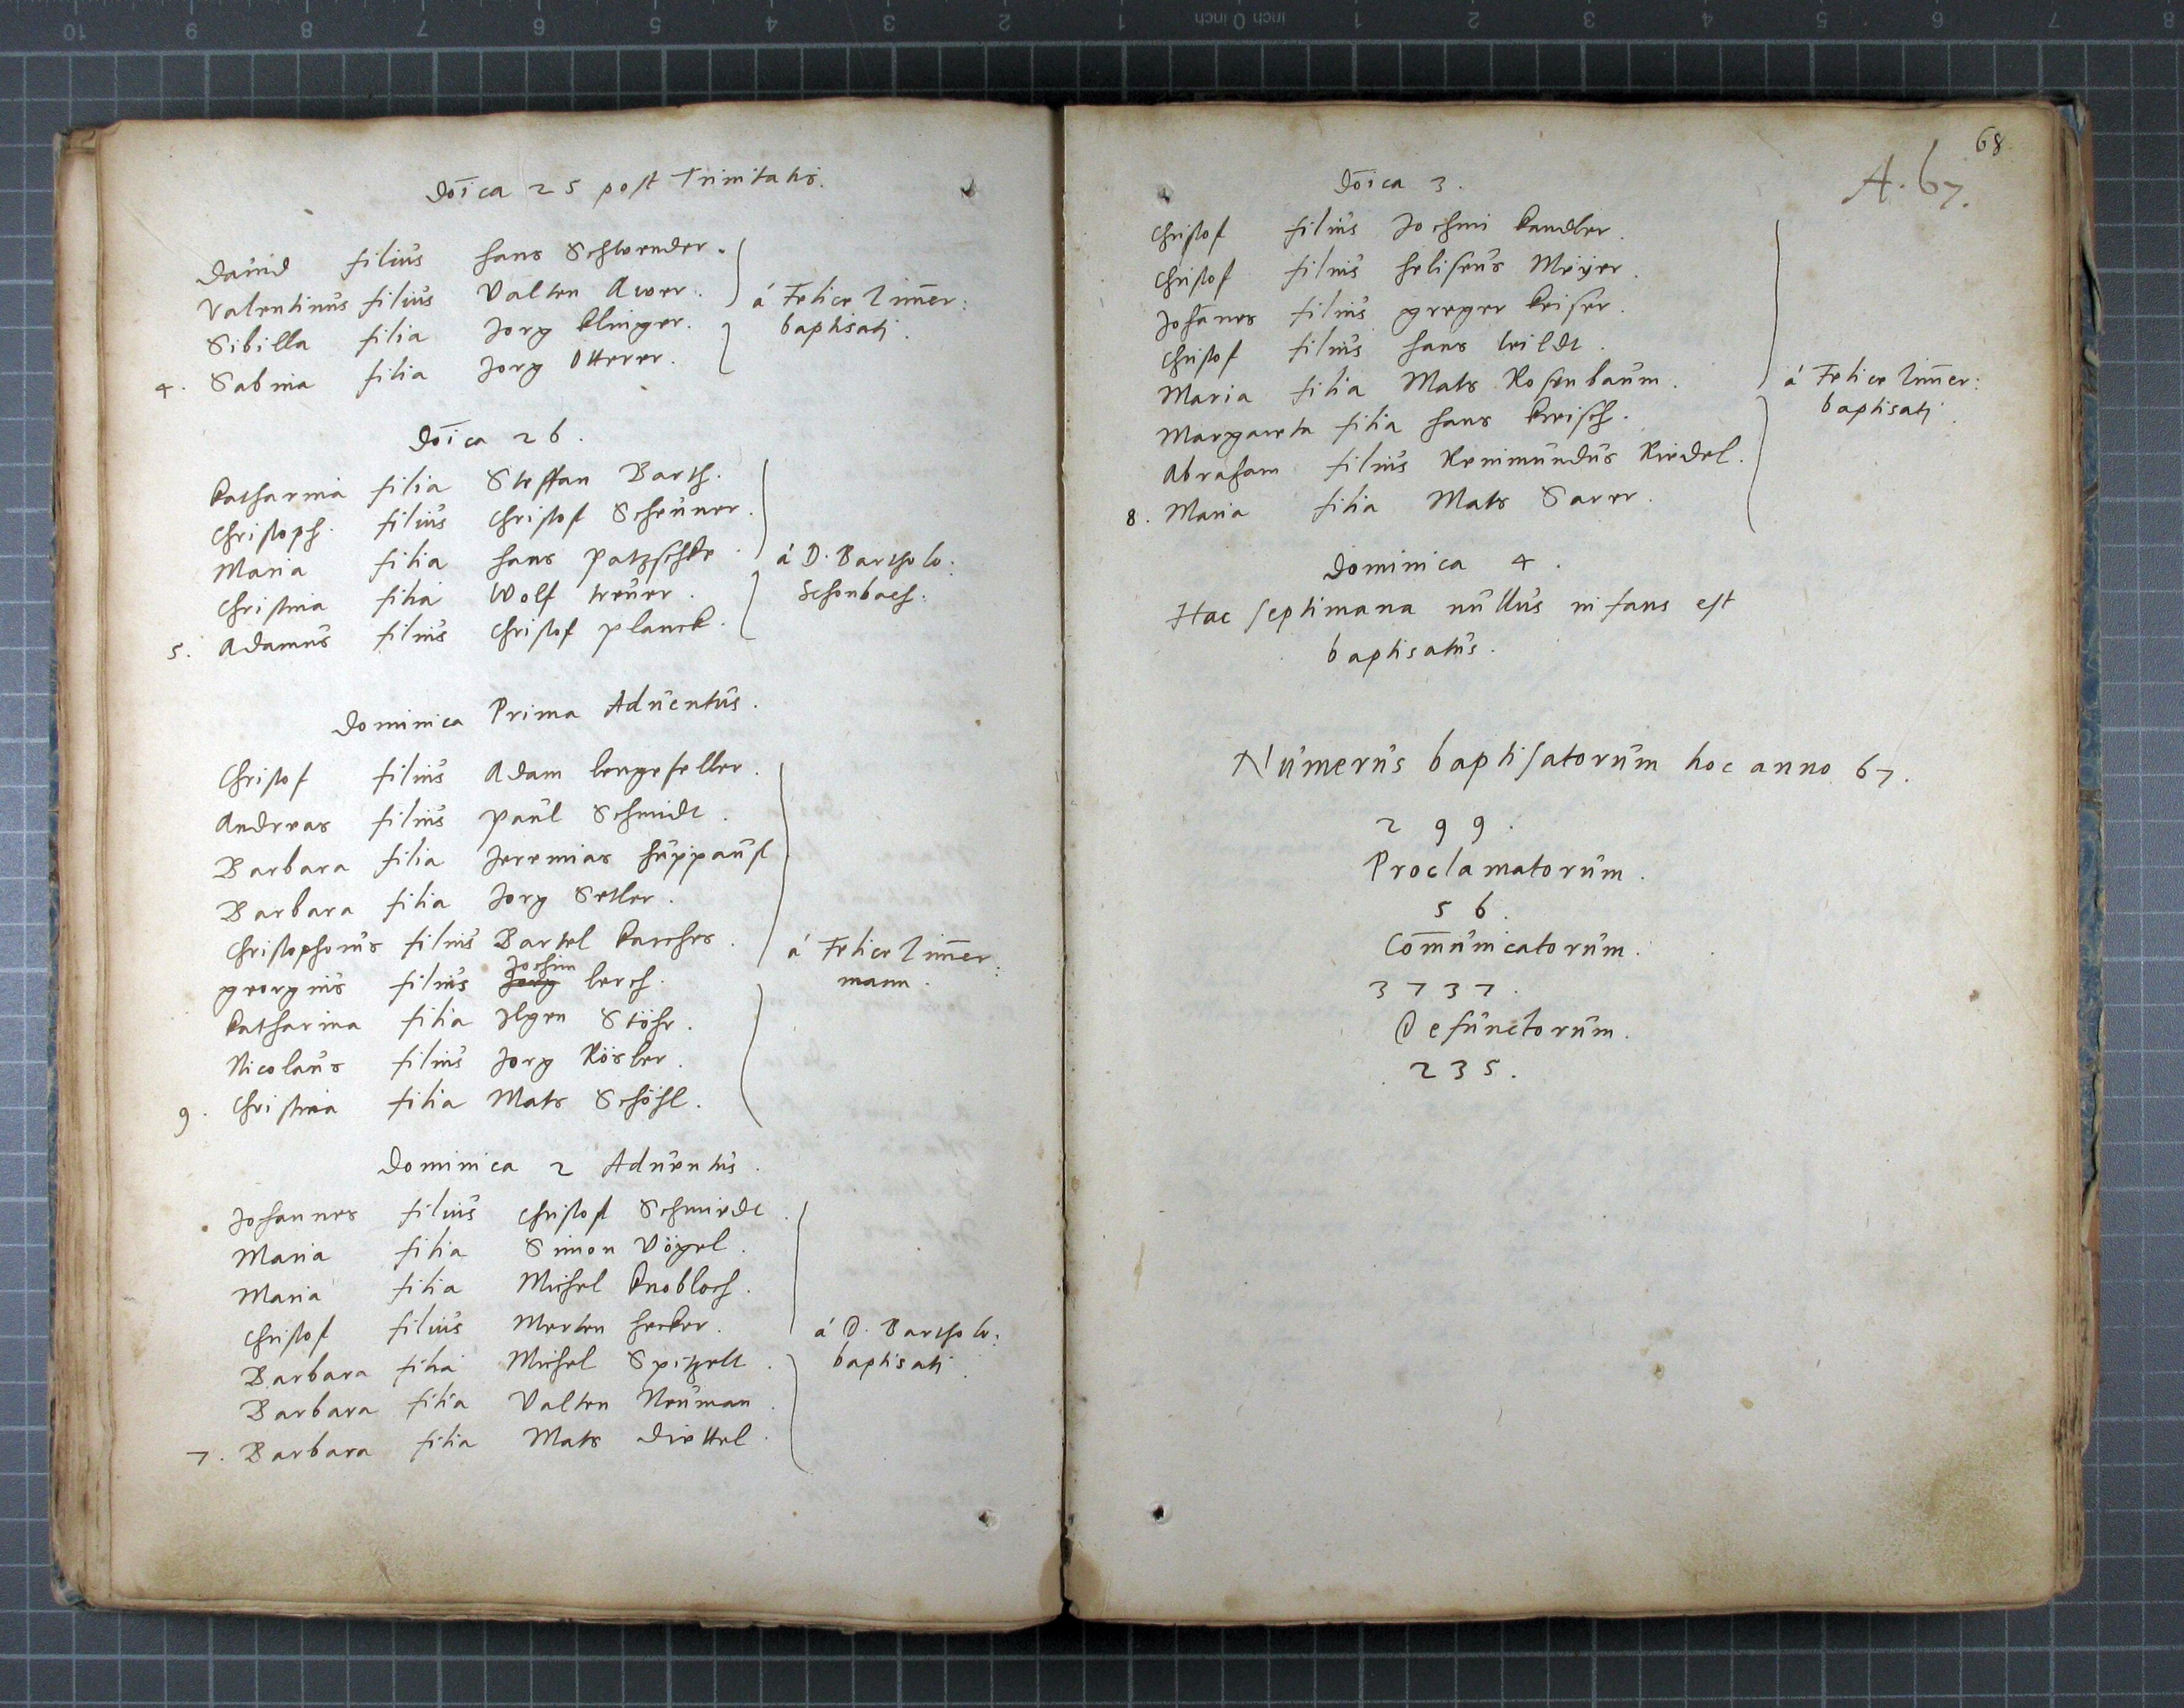 Doīca 25 post Trinitatis.
Dauid filius Hans Schwender.
Valentinus filius Valten Awer.
Sibilla filia Jorg Klinger.
4. Sabina filia Jorg Otterer.
á Felice Zim̄er:
baptisati.
Doīca 26.
Katharina filia Steffan Barth.
Christoph. filius Christof Scheuner.
Maria filia Hans Patzschke.
Christina filia Wolf treuer.
5. Adamus filius Christof Planck.
á D. Bartholo:
Schonbach.
Dominica Prima Aduentus.
Christof filius Adam lengefeller.
Andreas filius Paul Schmidt.
Barbara filia Jeremias Huppauf
Barbara filia Jorg Setler.
Christophorus filius Bartel Karches.
Jochim
georgius filius Jorg lerch.
Katharina filia Ilgen Stöhr.
Nicolaus filius Jorg Rösler.
9. Christina filia Mats Schöhl.
á Felice Zim̄er:
mann.
Dominica 2 Aduentus.
Johannes filius Christoff Schmiedt.
Maria filia Simon Vögel.
Maria filia Michel Knobloch.
Christof filius Merten Hecker.
Barbara filia Michel Spitzelt.
Barbara filia Valten Neuman.
7. Barbara filia Mats Diettel.
á D. Bartholo:
baptisati.
68.
A. 67.
Doīca 3.
Christof filius Jochim Kandler.
Christof filius Heliseus Meijer.
Johānes filius greger Keiser.
Christof filius Hans Weildt.
Maria filia Mats Rosenbaum.
Margareta filia Hans Kreisch.
Abraham filius Renimundus Riedel.
8. Maria filia Mats Sarer.
á Felice Zim̄er:
baptisati.
Dominica 4.
Hac septimana nullus infans est
baptisatus.
Numerus baptisatorum hoc anno 67.
299.
Proclamatorum.
56.
Com̄unicatorum.
3737.
Defunctorum.
235.
10 9 8 7 6 5 4 3 2 1 inch 0 inch 1 2 3 4 5 6 7 8